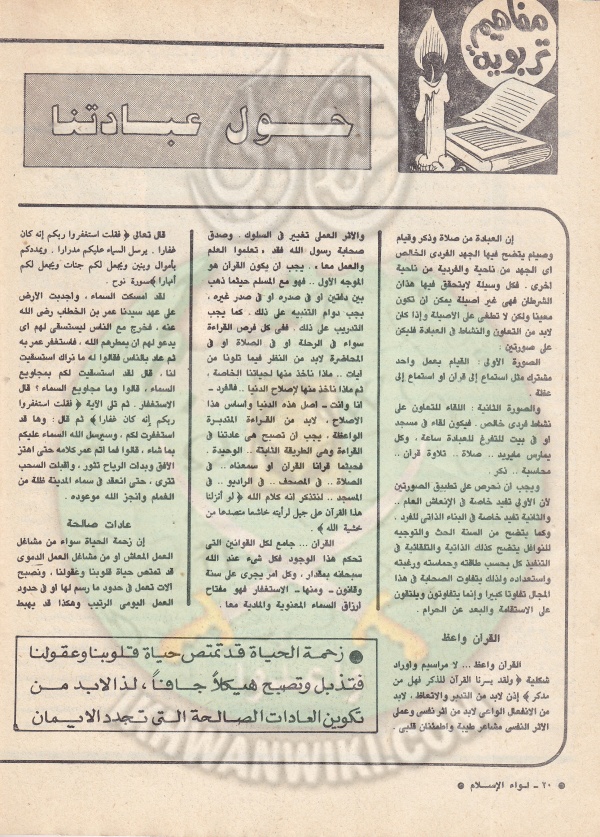 مفاهيم
تربوية
حول عبادتنا
إن العبادة من صلاة وذكر وقيام
وصيام يتضح فيها الجهد الفردى الخالص
اى الجهد من ناحية والفردية من ناحية
اخرى . فكل وسيلة لايتحقق فيها هذان
الشرطان فهى غير اصيلة يمكن ان تكون
معينا ولكن لا تطغى على الاصيلة وإذا كان
لابد من التعاون والنشاط فى العبادة فليكن
على صورتين :
الصورة الأولى : القيام بعمل واحد
مشترك مثل استماع إلى قران او استماع إلى
عظة
والصورة الثانية : اللقاء للتعاون على
نشاط فردى خالص . فيكون لقاء فى مسجد
او فى بيت للتفرغ للعبادة ساعة ، وكل
يمارس مايريد .. صلاة .. تلاوة قران ..
محاسبة .. ذكر .
ويجب ان نحرص على تطبيق الصورتين
لأن الأولى تفيد خاصة فى الإنعاش العام ..
والثانية تفيد خاصة فى البناء الذاتى للفرد .
وكما يتضح من السنة الحث والتوجيه
للنوافل يتضح كذلك الذاتية والتلقائية فى
التنفيذ كل بحسب طاقته وحماسته ورغبته
واستعداده ولذلك يتفاوت الصحابة فى هذا
المجال تفاوتا كبيرا وإنما يتفاوتون ويلتقون
على الاستقامة والبعد عن الحرام .
القران واعظ
القران واعظ ... لا مراسيم واوراد
شكلية ﴿ ولقد يسرنا القرآن للذكر فهل من
مدكر ﴾ إذن لابد من التدبر والاتعاظ . لابد
من الانفعال الواعى لابد من اثر نفسى وعملى
الأثر النفسى مشاعر طيبة واطمئنان قلبى .
والاثر العملى تغيير فى السلوك . وصدق
صحابة رسول الله فقد ، تعلموا العلم
والعمل معا ، . يجب ان يكون القرآن هو
الموجه الأول .. فهو مع المسلم حيثما ذهب
بين دفتين او فى صدره او فى صدر غيره .
يجب دوام التنبيه على ذلك . كما يجب
التدريب على ذلك . ففى كل فرص القراءة
سواء فى الرحلة او فى الصلاة او فى
المحاضرة لابد من النظر فيما تلونا من
ايات .. ماذا ناخذ منها لحياتنا الخاصة ،
ثم ماذا ناخذ منها لإصلاح الدنيا . فالفرد ـ
انا وانت ـ اصل هذه الدنيا واساس هذا
الاصلاح . لابد من القراءة المتدبرة
الواعظة ، يجب ان تصبح هى عادتنا فى
القراءة وهى الطريقة الثابتة .. الوحيدة .
فحيثما قرانا القران او سمعناه .. فى
الصلاة .. فى المصحف .. فى الراديو .. فى
المسجد .. لنتذكر انه كلام الله ﴿ لو أنزلنا
هذا القرآن على جبل لرأيته خاشعا متصدعا من
خشية الله ﴾ .
القران ... جامع لكل القوانين التى
تحكم هذا الوجود فكل شىء عند الله
سبحانه بمقدار ، وكل امر يجرى على سنة
وقانون ـ ومنها ـ الاستغفار فهو مفتاح
ارزاق السماء المعنوية والمادية معا .
قال تعالى ﴿ فقلت استغفروا ربكم إنه كان
غفارا . يرسل السماء عليكم مدرارا . ويمددكم
بأموال وبنين ويجعل لكم جنات ويجعل لكم
أنهارا ﴾ سورة نوح .
لقد امسكت السماء ، واجدبت الأرض
على عهد سيدنا عمر بن الخطاب رضى الله
عنه ، فخرج مع الناس ليستسقى لهم اى
يدعو لهم ان يمطرهم الله . فاستغفر عمر به
ثم عاد بالناس فقالوا له ما نراك استسقيت
لنا ، قال لقد استسقيت لكم بمجاويع
السماء ، قالوا وما مجاويع السماء ؟ قال
الاستغفار . ثم تلى الاية ﴿ فقلت استغفروا
ربكم إنه كان غفارا ﴾ ثم قال : وها قد
استغفرت لكم ، وسيرسل الله السماء عليكم
بما شاء ، قالوا فما اتم عمر كلامه حتى اهتز
الافق وبدات الرياح تثور ، واقبلا السحب
تترى ، حتى انعقد فى سماء المدينة ظلة من
الغمام وانجز الله موعوده .
عادات صالحة
إن زحمة الحياة سواء من مشاغل
العمل المعاش او من مشاغل العمل الدعوى
قد تمتص حياة قلوبنا وعقولنا ، ونصبح
الات تعمل فى حدود ما رسم لها او فى حدود
العمل اليومى الرتيب وهكذا قد يهبط
● زحمة الحياة قد تمتص حياة قلوبنا وعقولنا
فتذبل وتصبح هيكلاً جافاً ، لذا لابد من
تكوين العادات الصالحة التى تجدد الايمان
٢٠ - لواء الإسلام
IKHWANWIKI.COM